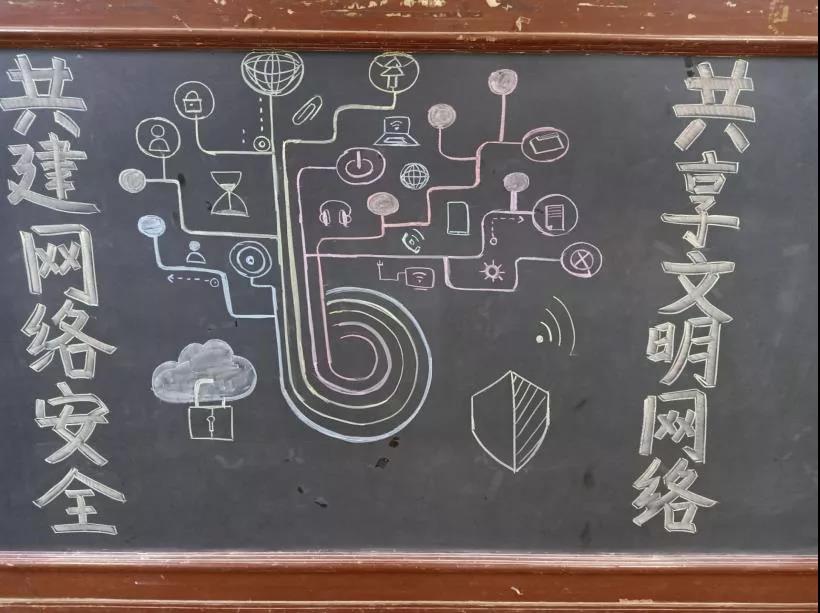 共建网络安全
共享文明网络